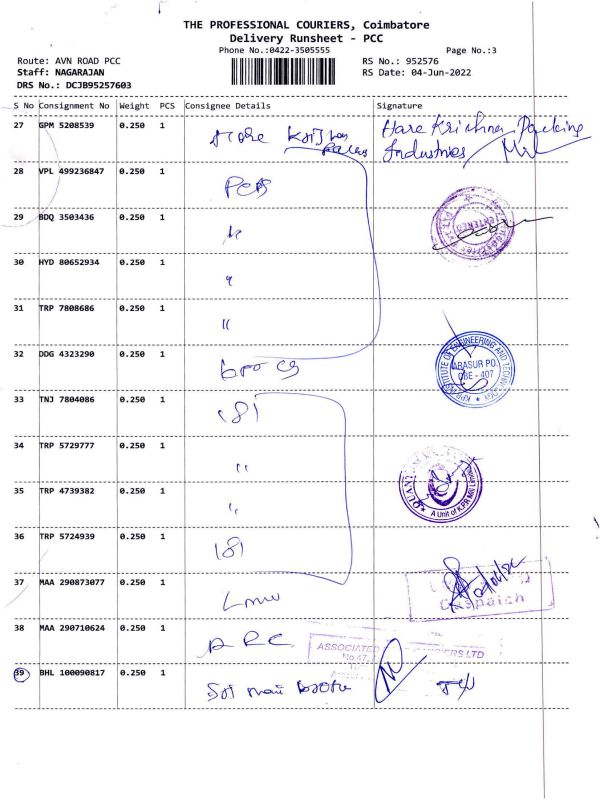 THE PROFESSIONAL COURIERS, Coimbatore
Delivery Runsheet - PCC
Phone No.:0422-3505555
Page No.:3
Route: AVN ROAD PCC
RS No.: 952576
Staff: NAGARAJAN
RS Date: 04-Jun-2022
DRS No.: DCJB95257603
S No Consignment No Weight PCS Consignee Details Signature
27 GPM 5208539 0.250 1 Hare Krishna Packing
Industries
28 VPL 499236847 0.250 1
29 BDQ 3503436 0.250 1 "
30 HYD 80652934 0.250 1 "
31 TRP 7808686 0.250 1 "
32 DDG 4323290 0.250 1 KPR INSTITUTE OF ENGINEERING AND TECHNOLOGY
ARASUR PO.
CBE - 407
33 TNJ 7804086 0.250 1 181
34 TRP 5729777 0.250 1 "
35 TRP 4739382 0.250 1 " A Unit of KPR Mill Limited
36 TRP 5724939 0.250 1 181
37 MAA 290873077 0.250 1 Lmw Despatch
38 MAA 290710624 0.250 1 ASSOCIATED
LTD
No.47,
39 BHL 100090817 0.250 1 Sri